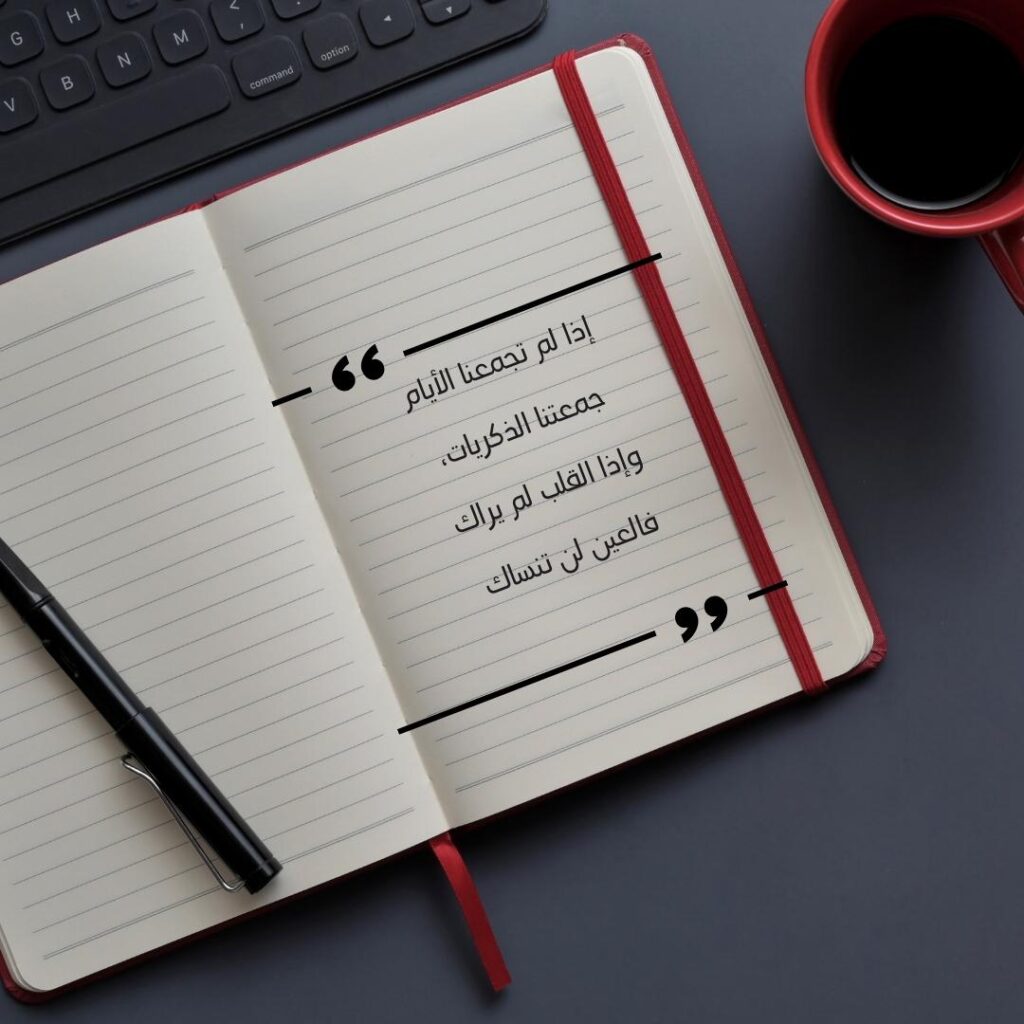 G
H
V
B
N
M
<
,
command
option
إذا لم تجمعنا الأيام
جمعتنا الذكريات،
وإذا القلب لم يراك
فالعين لن تنساك